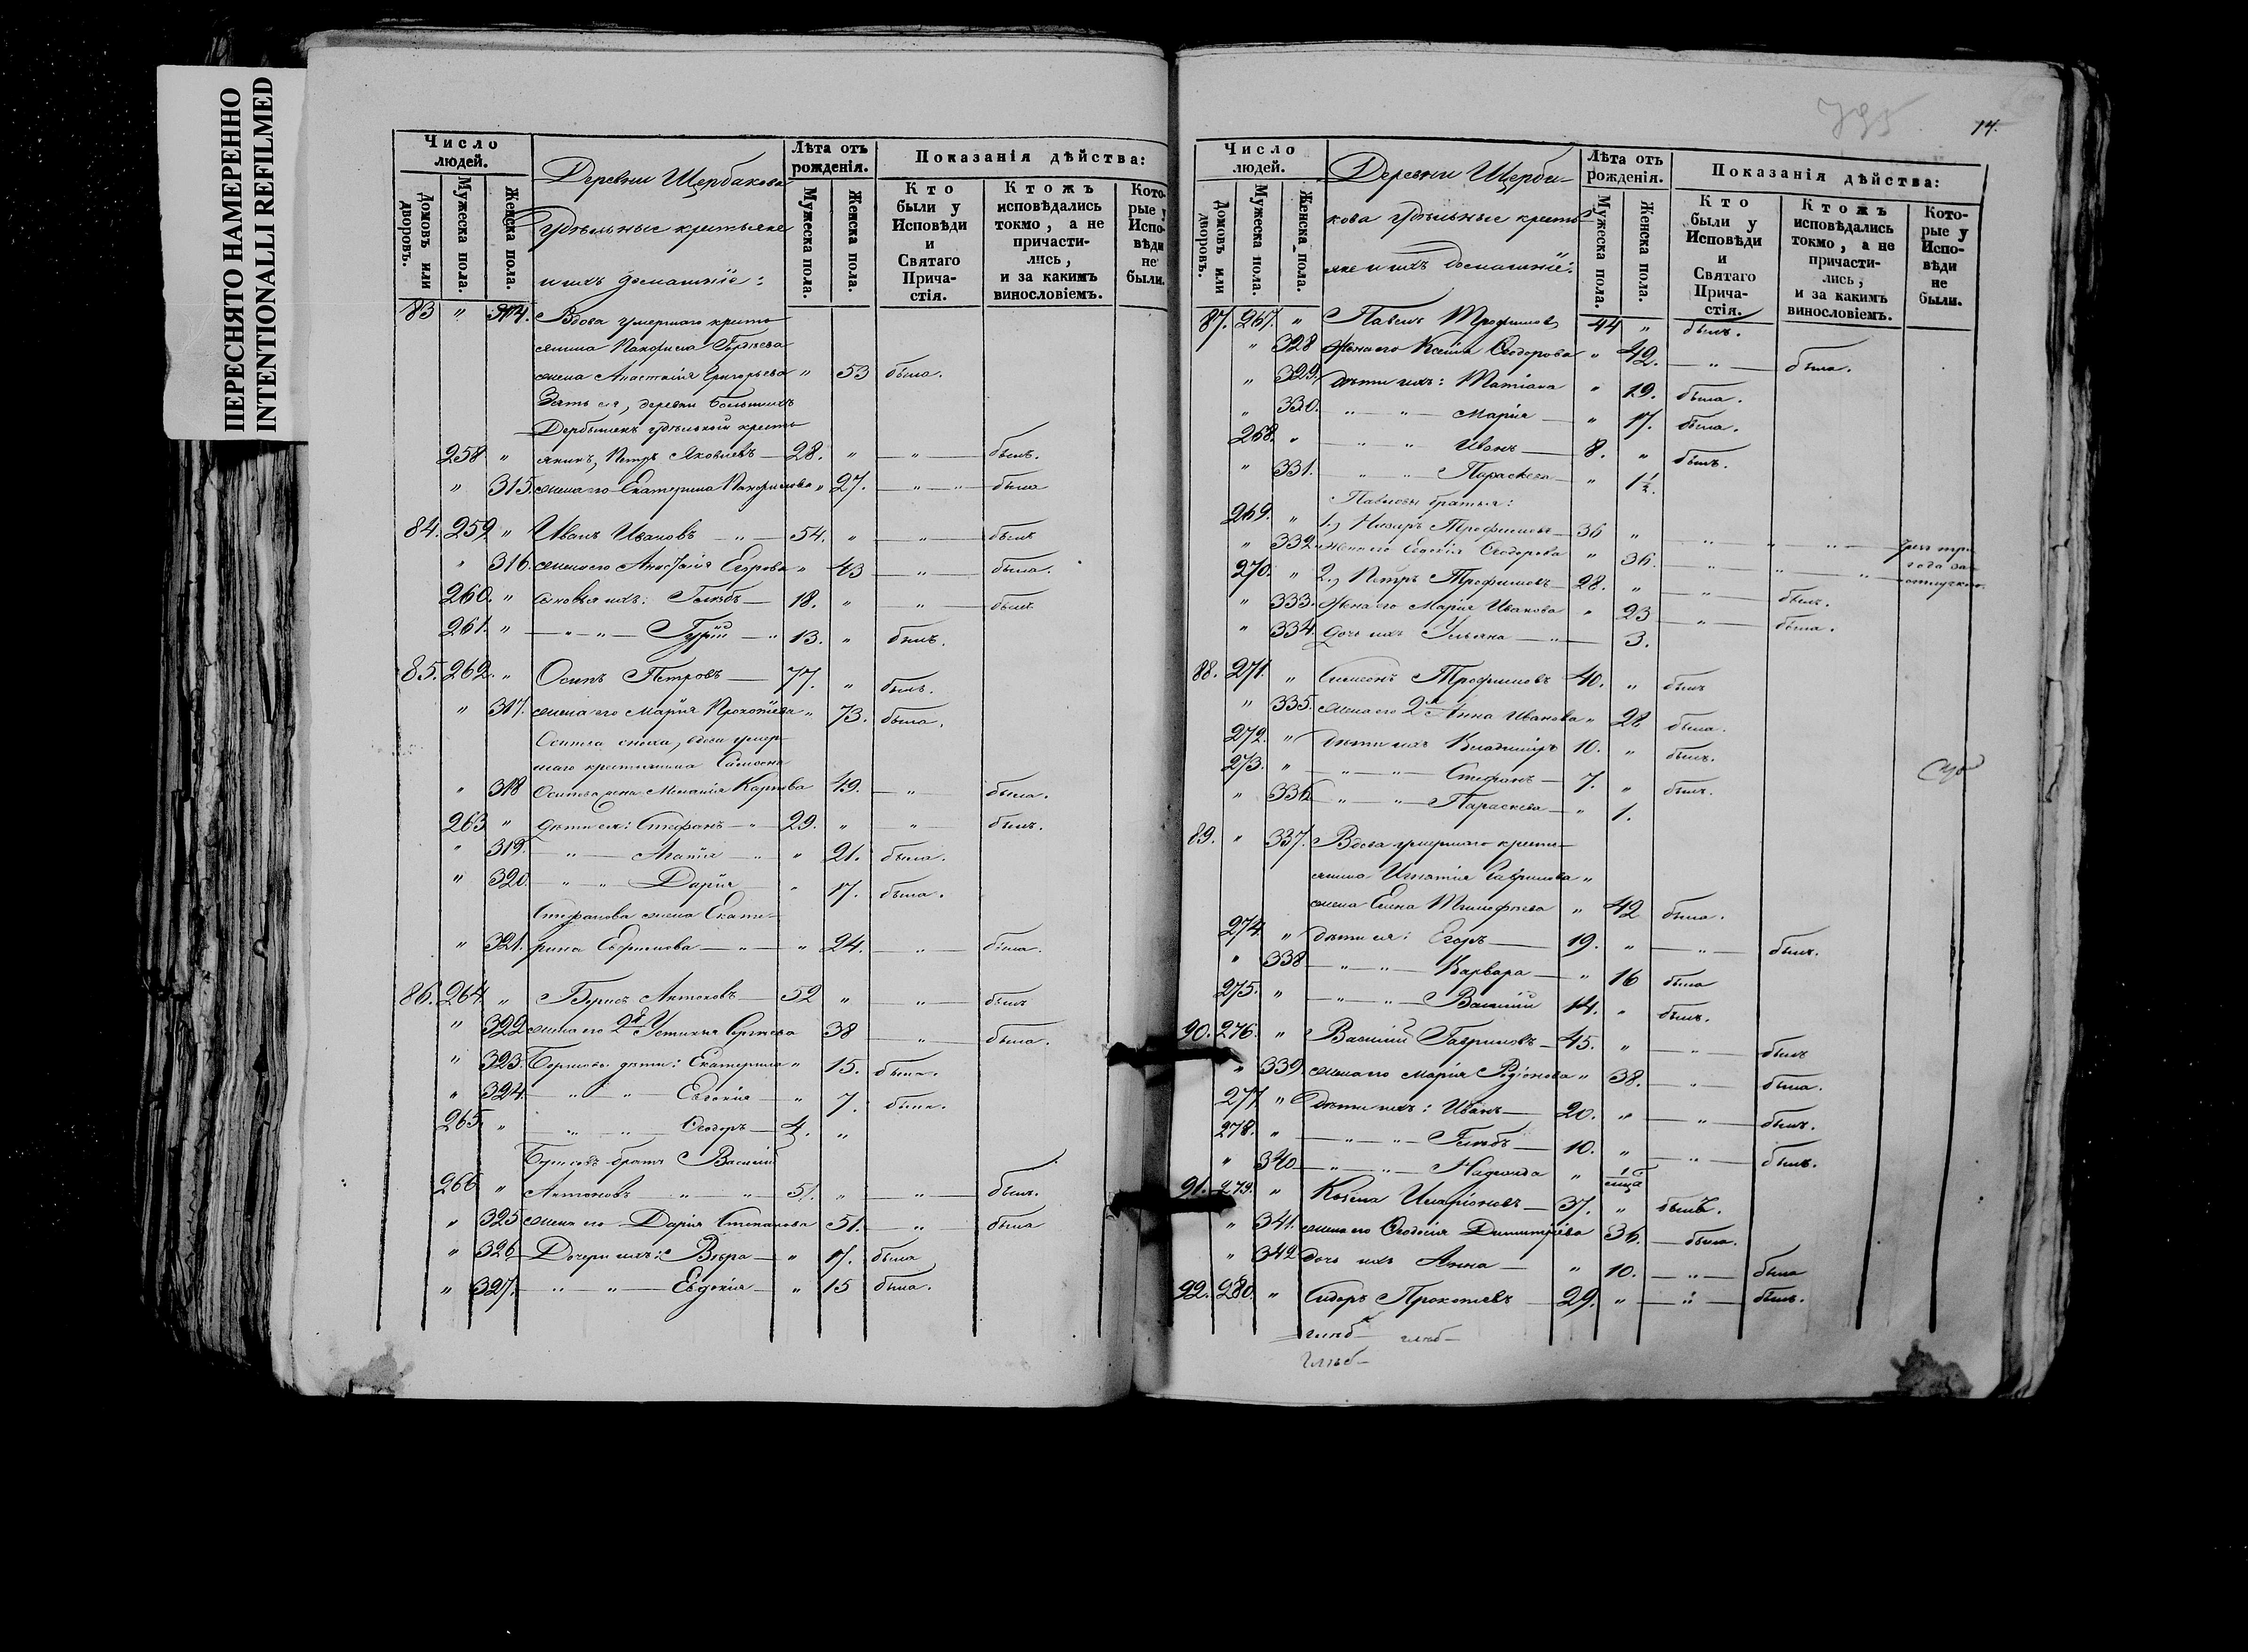 ПЕРЕСНЯТО НАМЕРЕННО
INTENTIONALLI REFILMED
Число людей.
Домовъ или дворовъ.
Мужеска пола.
Женска пола.
Деревни Щербакова
Удѣльные крестьяне
и ихъ домашніе:
Лѣта отъ рожденія.
Мужеска пола.
Женска пола.
Показанія дѣйства:
Кто были у Исповѣди и Святаго Прича-стія.
Ктожъ исповѣдались токмо, а не причасти-лись, и за какимъ винословіемъ.
Кото-рые у Испо-вѣди не были.
83 " 314. Вдова умершаго кресть-
янина Панфила
жена Анастасія Григорьева " 53 была.
Зять ея, деревни Большихъ
Дербышекъ удѣльный кресть-
258 " янинъ, Петръ Яковлевъ 28. " " былъ.
" 315. жена его Екатерина Панфилова " 27. " " была
84. 259 " Иванъ Ивановъ 54. " " былъ
" 316. жена его Егорова " 43 " была.
260. " Сыновья ихъ: Глѣбъ 18. " " былъ
261. " " " Гурій " 13. " былъ.
85. 262. " Осипъ Петровъ 77. " былъ.
" 317. жена его Марія Прокопіева " 73. была.
Осипа сноха, вдова умер-
шаго крестьянина
" 318 Осипова жена Меланія Карпова 49. " была.
263 " дѣти ея: Стефанъ " 29. " " былъ.
" 319. " Агапія " " 21. была.
" 320. " " Дарія " 17. была.
Стефанова жена Екате-
" 321. рина " " 24. " была.
86. 264. " Борисъ Антоновъ 52 " " былъ
" 322 жена его 2я Устинья Сергѣева 38 " была.
" 323. Борисовы дѣти: Екатерина " 15. была.
" 324. " " Евдокія " 7. была.
265. " " " Ѳеодоръ 4. "
Борисовъ братъ Василій
266 " Антоновъ " " 51. " " былъ.
" 325 жена его Дарія Степанова 51. " была
" 326 Дочери ихъ: Вѣра " 17. была
" 327. " " Евдокія " 15 была.
795
74.
Число людей.
Домовъ или дворовъ.
Мужеска пола.
Женска пола.
Деревни Щерба-
кова удѣльные кресть-
яне и ихъ домашніе:
Лѣта отъ рожденія.
Мужеска пола.
Женска пола.
Показанія дѣйства:
Кто были у Исповѣди и Святаго Прича-стія.
Ктожъ исповѣдались токмо, а не причасти-лись, и за какимъ винословіемъ.
Кото-рые у Испо-вѣди не были.
87. 267. " Павелъ Трофимовъ 44 " былъ.
" 328 Жена его Ксенія Ѳеодорова " 42. " была.
" 329. дѣти ихъ: Татіана " 19. была.
" 330. " " Марія " 17. была.
268. " " " Иванъ 8. " былъ.
" 331. " " Параскева " 1½.
Павловы братья:
269. " 1., Назаръ Трофимовъ 36 " " " "
" 332. жена его Евдокія Ѳеодорова " 36. " " "
270. " 2., Петръ Трофимовъ 28. " " былъ.
" 333. Жена его Марія Иванова " 23 " была.
" 334. дочь ихъ Ульяна " 3.
88. 271. " Симеонъ Трофимовъ 40. " былъ
" 335. жена его 2я Анна Иванова " 28 была.
272. " дѣти ихъ Владиміръ 10. " былъ.
273. " " " Стефанъ 7. " былъ.
" 336 " " Параскева " 1.
89. " 337. Вдова умершаго кресть-
янина Игнатія Гаврилова "
жена Елена Тимофеева " 42 была.
274. " дѣти ея: Егоръ 19. " " былъ.
" 338 " " Варвара " 16 была
275. " " " Василій 14. " былъ.
90. 276. " Василій Гавриловъ 45. " " былъ
" 339. жена его Марія Родіонова " 38. " была.
277. " Дѣти ихъ: Иванъ 20. " " былъ.
278. " " " Глѣбъ 10. " " былъ.
" 340 " " Надежда "
91. 279. " Козьма Иларіоновъ 37. " былъ.
" 341. жена его Ѳеодосія Димитріева 36. была.
" 342 дочь ихъ Анна " 10. " была
92. 280. " Сидоръ Прокопіевъ 29. " " былъ.
глѣб глѣб
Глѣб